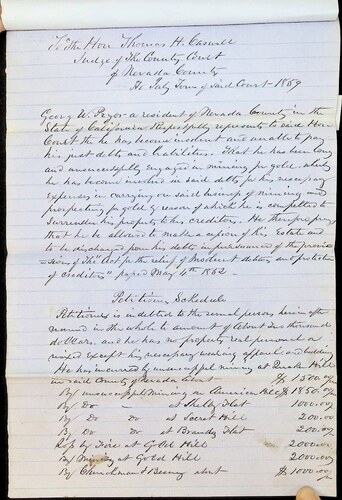 To The Hon Thomas H. Caswell
Judge of The County Court
of Nevada County
At July Term of Said Court 1869
George W. Pryor a resident of Nevada County in the
State of California Respectfully represents to said Hon
Court the he has become insolvent and unable to pay
his just debts and liabilities. That he has been long
and unsuccessfully engaged in mining for gold which
he has become involved in said debts, by his necessary
expenses in carrying on said business of mining and
prospecting for gold by reason of which he is compelled to
Surrender his property to his creditors. He therefore pray
that he be allowed to make a cession of his Estate and
to be discharged from his debts in pursuance of the provis
=sions of The "Act for the relief of Insolvent debtors and protection
of creditors" passed May 4th 1852
Petitioners Schedule
Petitioner is indebted to the several persons herein after
named in the whole to amount of about thousand
dollars. and he has no property real personal or
mixed except his necessary wearing apparel and bedding
He has incurred by unsuccessful mining at Quaker Hill
in said County of Nevada about $1500.00
By unsuccessful Mining on American Hill $1850.00
By Do — at Shelby Flat 1000.00
By Do Do at Scott Hill 200.00
By Do Do at Brandy Flat 200.00
Loss by Fire at Gold Hill 2000.00
By Mining at Gold Hill 2000.00
By Churchman & about $1000.00